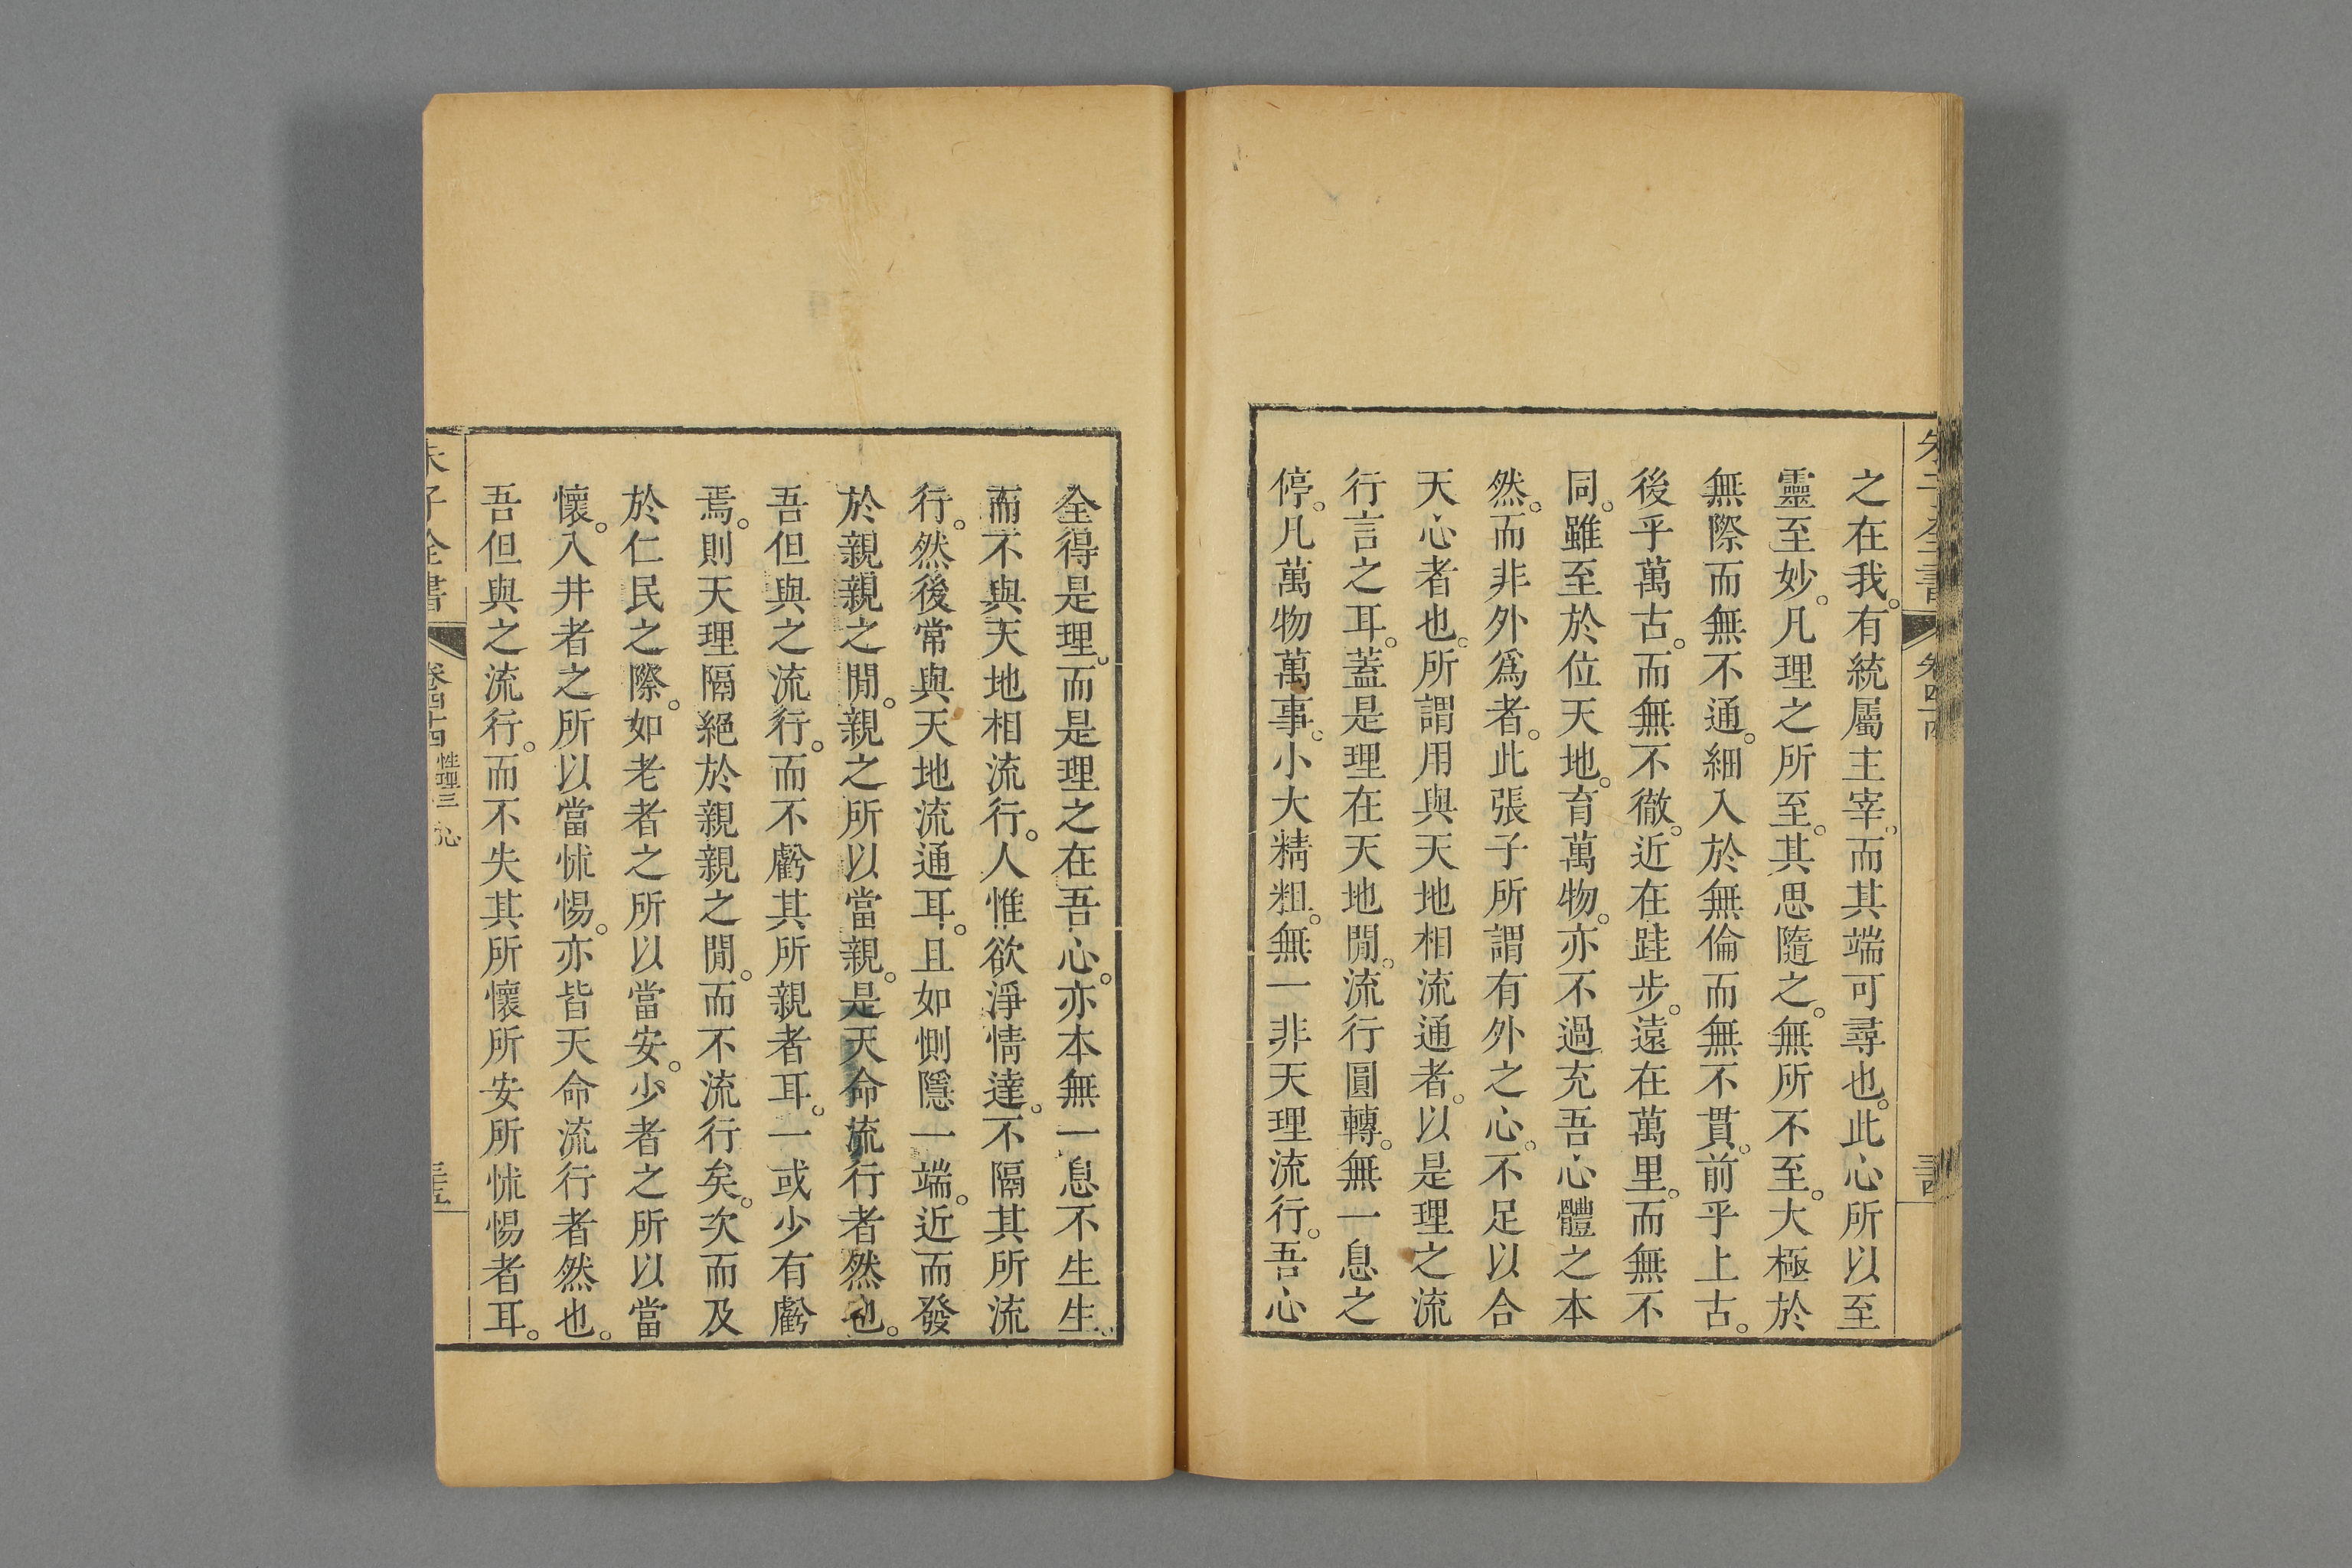 之在我。有統屬主宰。而其端可尋也。此心所以至
靈至妙。凡理之所至。其思隨之。無所不至。大極於
無際而無不通。細入於無倫而無不貫。前乎上古。
後乎萬古。而無不徹。近在跬步。遠在萬里。而無不
同。雖至於位天地。育萬物。亦不過充吾心體之本
然。而非外爲者。此張子所謂有外之心。不足以合
天心者也。所謂用與天地相流通者。以是理之流
行言之耳。蓋是理在天地閒。流行圓轉。無一息之
停。凡萬物萬事。小大精粗。無一非天理流行。吾心
全得是理。而是理之在吾心。亦本無一息不生生。
而不與天地相流行。人惟欲淨情達。不隔其所流
行。然後常與天地流通耳。且如惻隱一端。近而發
於親親之閒。親之所以當親。是天命流行者然也。
吾但與之流行。而不虧其所親者耳。一或少有虧
焉。則天理隔絕於親親之閒。而不流行矣。次而及
於仁民之際。如老者之所以當安。少者之所以當
懷。入井者之所以當怵惕。亦皆天命流行者然也。
吾但與之流行。而不失其所懷所安所怵惕者耳。
朱子全書 卷四十四 性理三 心